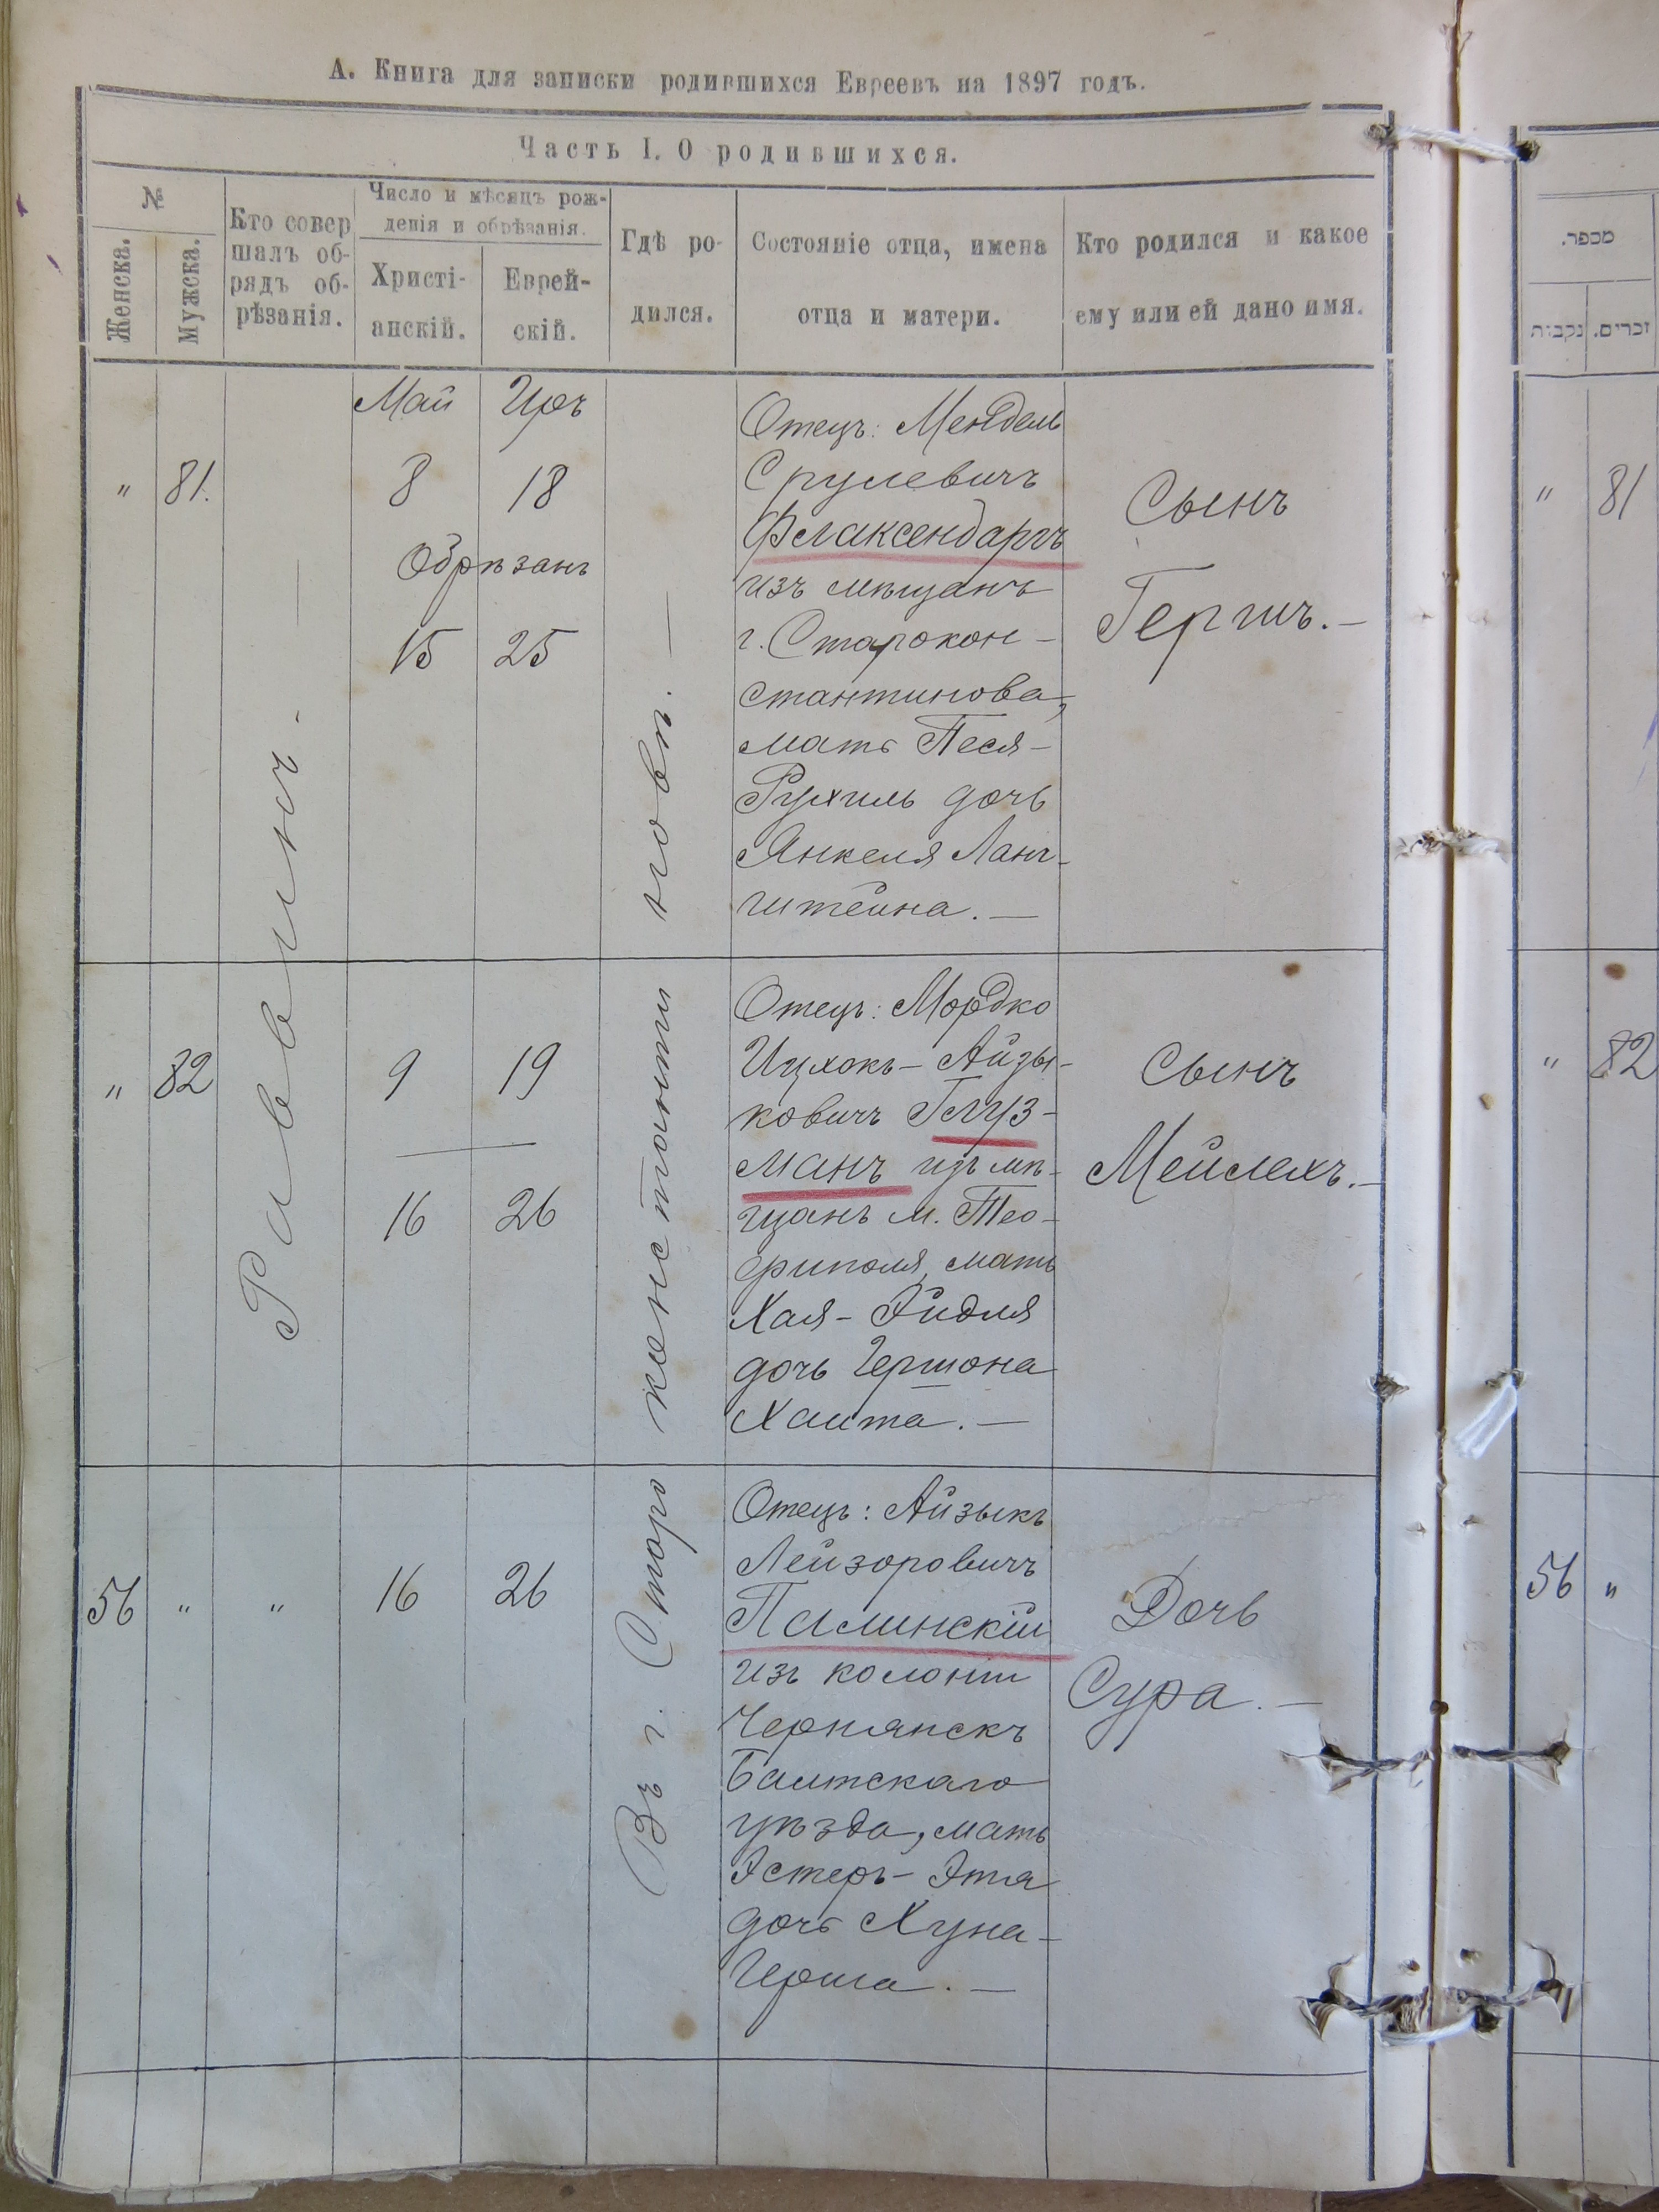 А. Книга для записки родившихся Евреевъ на 1897 годъ.
Часть I. О родившихся.
№
Женска.
Мужска.
Кто совер
шалъ об-
рядъ об-
рѣзанія.
Число и мѣсяцъ рож-
денія и обрѣзанія.
Христі-
анскій.
Еврей-
скій.
Гдѣ ро-
дился.
Состояніе отца, имена
отца и матери.
Кто родился и какое
ему или ей дано имя.
Раввинъ. —
Въ г. Староконстантиновѣ. —
Май Иръ
" 81. 8 18
Обрѣзанъ
15 25
Отецъ: Мендель
Срулевичъ
Флаксендаргъ
изъ мѣщанъ
г. Старокон-
стантинова,
мать Песя-
Рухиль дочь
Янкеля Ланг-
штейна. —
Сынъ
Гершъ. —
" 82 9 19
16 26
Отецъ: Мордко
Ицхокъ-Айзы-
ковичъ Глуз-
манъ изъ мѣ-
щанъ м. Тео-
фиполя, мать
Хая-Эйдля
дочь Гершона
Хаита. —
Сынъ
Мейлехъ. —
56 " " 16 26
Отецъ: Айзыкъ
Лейзоровичъ
Палинскій
изъ колоніи
Чернянскъ
Балтскаго
уѣзда, мать
Эстеръ-Этя
дочь Хуна-
Герша. —
Дочь
Сура. —
מספר.
נקבות
זכרים.
" 81
" 82
56 "